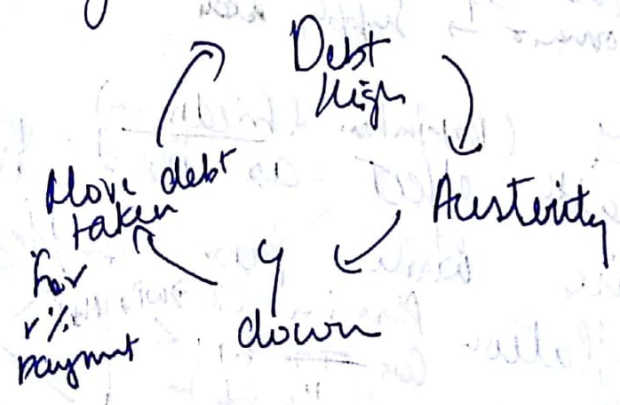 Debt
High
Austerity
Y
down
More debt
taken
for
r%
payment